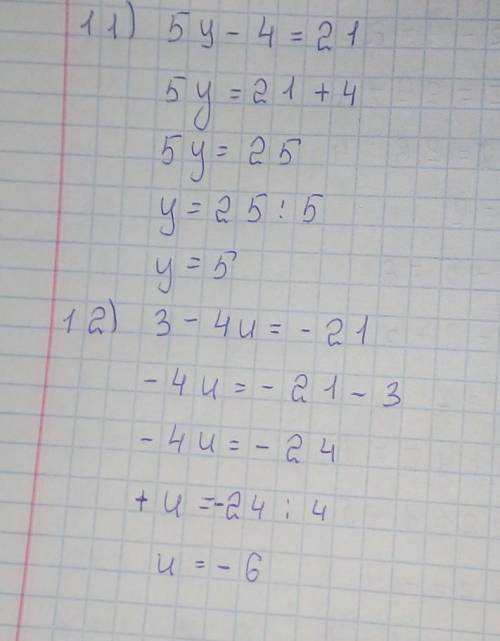 11) 5y - 4 = 21
5y = 21 + 4
5y = 25
y = 25 : 5
y = 5
12) 3 - 4u = - 21
- 4u = - 21 - 3
- 4u = - 24
+ u = -24 : 4
u = - 6